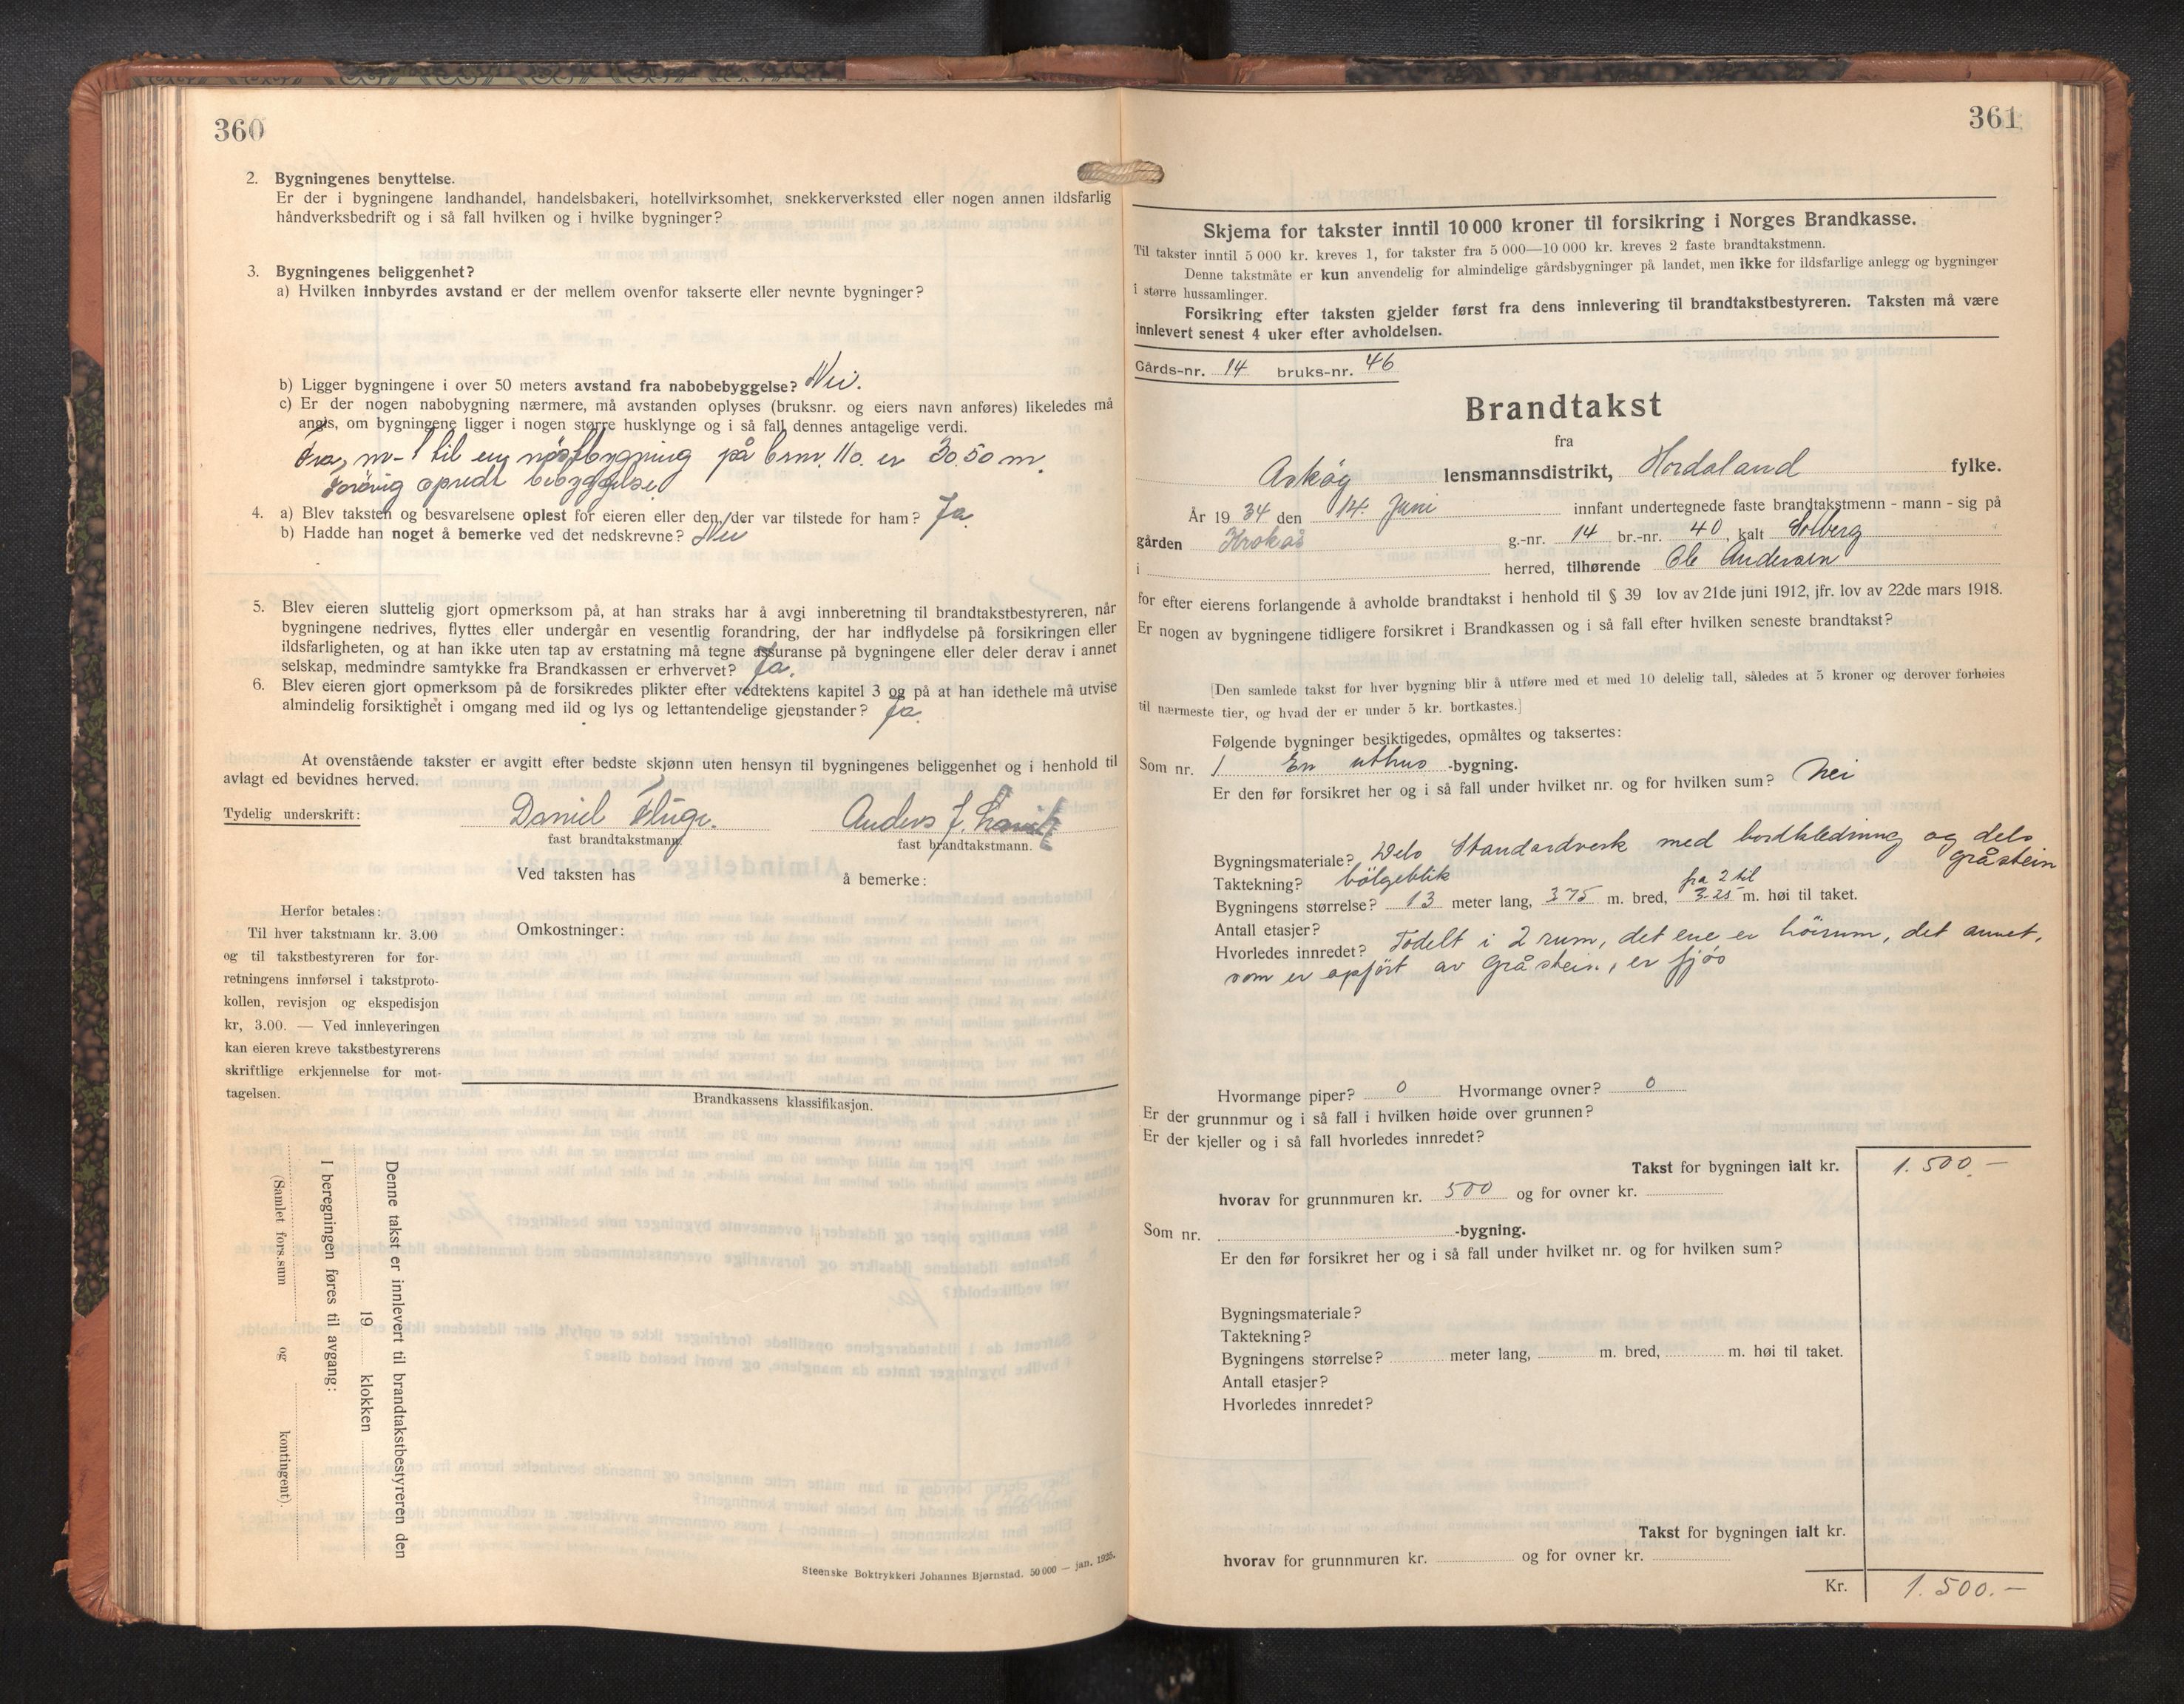 360
2. Bygningenes benyttelse.
Er der i bygningene landhandel, handelsbakeri, hotellvirksomhet, snekkerverksted eller nogen annen ildsfarlig
håndverksbedrift og i så fall hvilken og i hvilke bygninger?
3. Bygningenes beliggenhet?
a) Hvilken innbyrdes avstand er der mellem ovenfor takserte eller nevnte bygninger?
b) Ligger bygningene i over 50 meters avstand fra nabobebyggelse? Nei.
c) Er der nogen nabobygning nærmere, må avstanden oplyses (bruksnr. og eiers navn anføres) likeledes må
angis, om bygningene ligger i nogen større husklynge og i så fall dennes antagelige verdi.
Fra m-1 til en nøstbygning på brnr. 110. er 30.50 m.
forøvrig spredt bebyggelse
4. a) Blev taksten og besvarelsene oplest for eieren eller den, der var tilstede for ham? Ja.
b) Hadde han noget å bemerke ved det nedskrevne? Nei
5. Blev eieren sluttelig gjort opmerksom på, at han straks har å avgi innberetning til brandtakstbestyreren, når
bygningene nedrives, flyttes eller undergår en vesentlig forandring, der har indflydelse på forsikringen eller
ildsfarligheten, og at han ikke uten tap av erstatning må tegne assuranse på bygningene eller deler derav i annet
selskap, medmindre samtykke fra Brandkassen er erhvervet? Ja.
6. Blev eieren gjort opmerksom på de forsikredes plikter efter vedtektens kapitel 3 og på at han idethele må utvise
almindelig forsiktighet i omgang med ild og lys og lettantendelige gjenstander? Ja.
At ovenstående takster er avgitt efter bedste skjønn uten hensyn til bygningenes beliggenhet og i henhold til
avlagt ed bevidnes herved.
Tydelig underskrift: Daniel Fluge. Anders J.
fast brandtakstmann. fast brandtakstmann.
Ved taksten has å bemerke:
Herfor betales:
Til hver takstmann kr. 3.00
og til takstbestyreren for for-
retningens innførsel i takstproto-
kollen, revisjon og ekspedisjon
kr, 3.00. — Ved innleveringen
kan eieren kreve takstbestyrerens
skriftlige erkjennelse for mot-
tagelsen.
Omkostninger:
Brandkassens klassifikasjon.
Denne takst er innlevert til brandtakstbestyreren den
19 klokken
I beregningen føres til avgang:
(Samlet fors.sum og kontingent).
Steenske Boktrykkeri Johannes Bjørnstad. 50 000 — jan. 1925.
361
Skjema for takster inntil 10 000 kroner til forsikring i Norges Brandkasse.
Til takster inntil 5 000 kr. kreves 1, for takster fra 5 000—10 000 kr. kreves 2 faste brandtakstmenn.
Denne takstmåte er kun anvendelig for almindelige gårdsbygninger på landet, men ikke for ildsfarlige anlegg og bygninger
i større hussamlinger.
Forsikring efter taksten gjelder først fra dens innlevering til brandtakstbestyreren. Taksten må være
innlevert senest 4 uker efter avholdelsen.
Gårds-nr. 14 bruks-nr. 46
Brandtakst
fra
Askøy lensmannsdistrikt, Hordaland fylke.
År 1934 den 14. Juni innfant undertegnede faste brandtakstmenn - mann - sig på
gården Krokås g.-nr. 14 br.-nr. 40, kalt Solberg
i herred, tilhørende Ole Andersen
for efter eierens forlangende å avholde brandtakst i henhold til § 39 lov av 21de juni 1912, jfr. lov av 22de mars 1918.
Er nogen av bygningene tidligere forsikret i Brandkassen og i så fall efter hvilken seneste brandtakst?
[Den samlede takst for hver bygning blir å utføre med et med 10 delelig tall, således at 5 kroner og derover forhøies
til nærmeste tier, og hvad der er under 5 kr. bortkastes.]
Følgende bygninger besiktigedes, opmåltes og taksertes:
Som nr. 1 En uthus -bygning.
Er den før forsikret her og i så fall under hvilket nr. og for hvilken sum? Nei
Bygningsmateriale? Dels Standardverk med bordklædning og dels
gråstein
Taktekning? bølgeblik
fra 2 til
Bygningens størrelse? 13 meter lang, 3.75 m. bred, 3.25 m. høi til taket.
Antall etasjer?
Hvorledes innredet? Todelt i 2 rum, det ene er høirum, det annet,
som er opført av gråstein, er fjøs
Hvormange piper? 0 Hvormange ovner? 0
Er der grunnmur og i så fall i hvilken høide over grunnen?
Er der kjeller og i så fall hvorledes innredet?
Takst for bygningen ialt kr. 1.500.—
hvorav for grunnmuren kr. 500 og for ovner kr.
Som nr. -bygning.
Er den før forsikret her og i så fall under hvilket nr. og for hvilken sum?
Bygningsmateriale?
Taktekning?
Bygningens størrelse? meter lang, m. bred, m. høi til taket.
Antall etasjer?
Hvorledes innredet?
Takst for bygningen ialt kr.
hvorav for grunnmuren kr. og for ovner kr.
Kr. 1.500.—